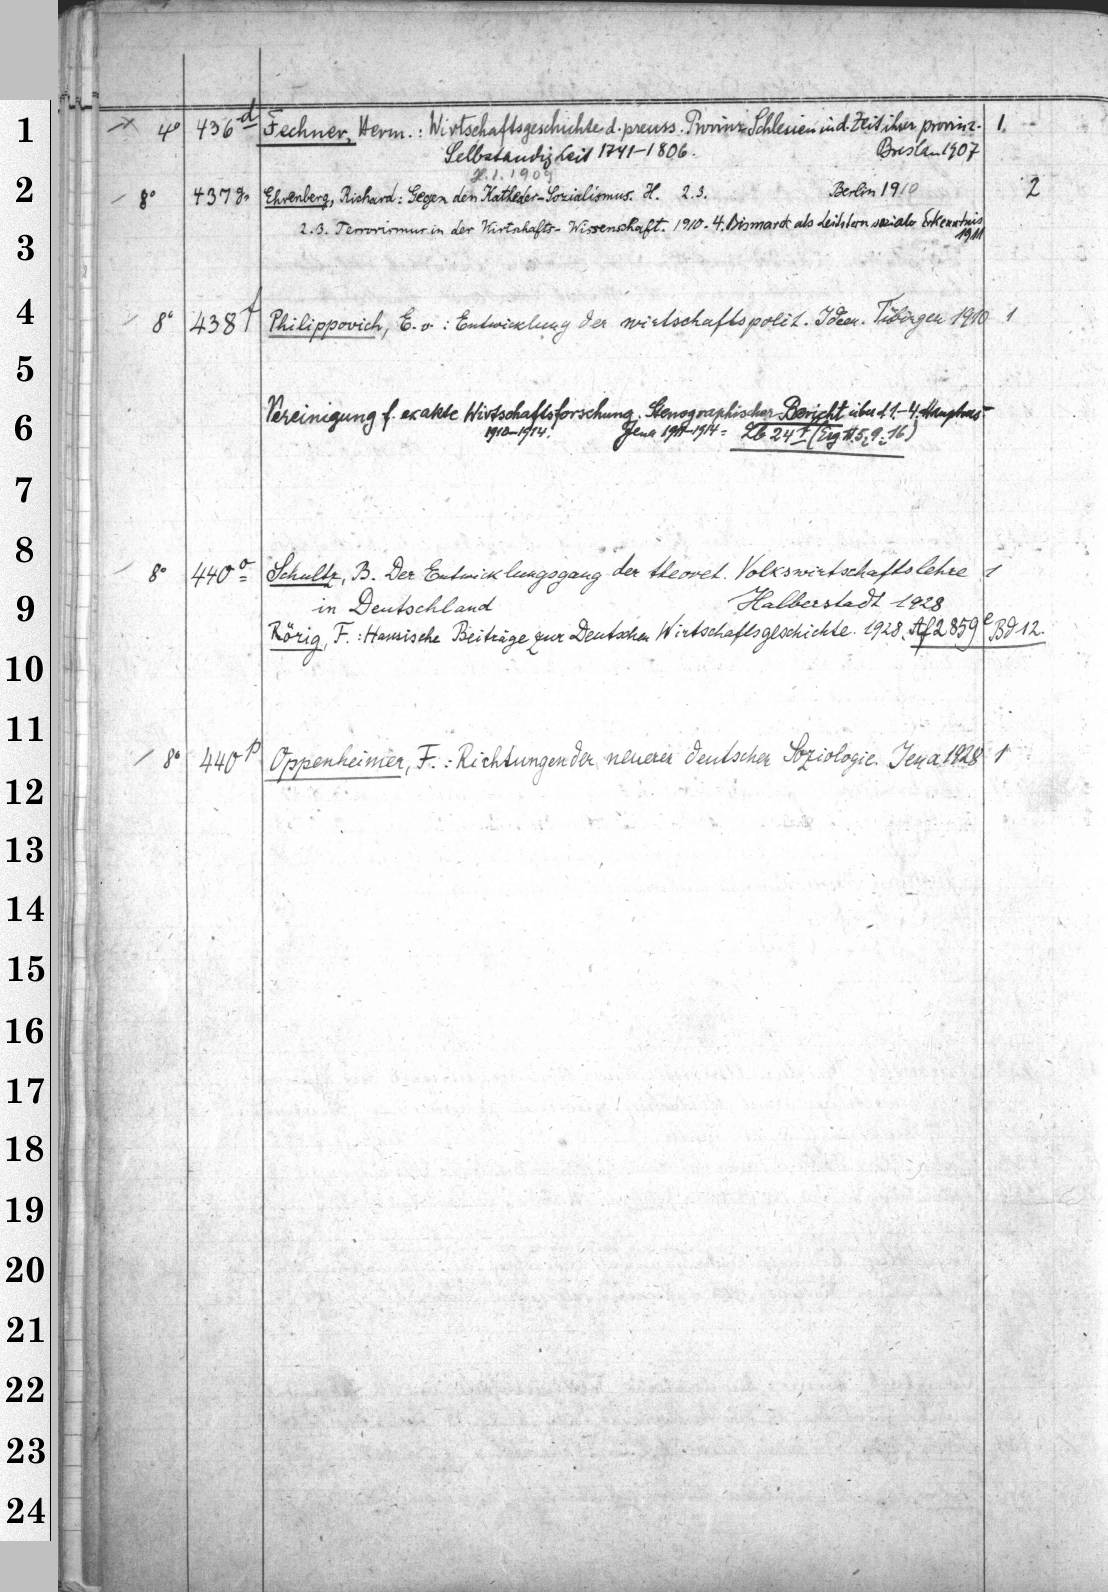 1
4° 436 d Fechner, Herm.: Wirtschaftsgeschichte d. preuss. Provinz Schlesien in d. Zeit ihrer provinz. 1.
Selbständigkeit 1741–1806. Breslau 1907
H. 1. 1909
2
8° 437 Ehrenberg, Richard: Gegen den Katheder-Sozialismus. H. 2.3. Berlin 1910 2
2.3. Terrorismus in der Wirtschafts-Wissenschaft. 1910. 4. Bismarck als Leitstern sozialer Erkenntnis
1911
3
4
8° 438 f Philippovich, E. v.: Entwicklung der wirtschaftspolit. Ideen. Tübingen 1910 1
5
Vereinigung f. exakte Wirtschaftsforschung. Stenographischer Bericht über d. 1.–4. Hauptvers.
6
1910–1914. Jena 1911–1914 = Zb 24 f (Erg H. 5; 9; 16)
7
8
8° 440 o Schultz, B. Der Entwicklungsgang der theoret. Volkswirtschaftslehre 1
9
in Deutschland Halberstadt 1928
Rörig, F.: Hansische Beiträge zur Deutschen Wirtschaftsgeschichte. 1928. Af 2859 e Bd 12.
10
11
8° 440 p Oppenheimer, F.: Richtungen der neueren deutschen Soziologie. Jena 1928 1
12
13
14
15
16
17
18
19
20
21
22
23
24